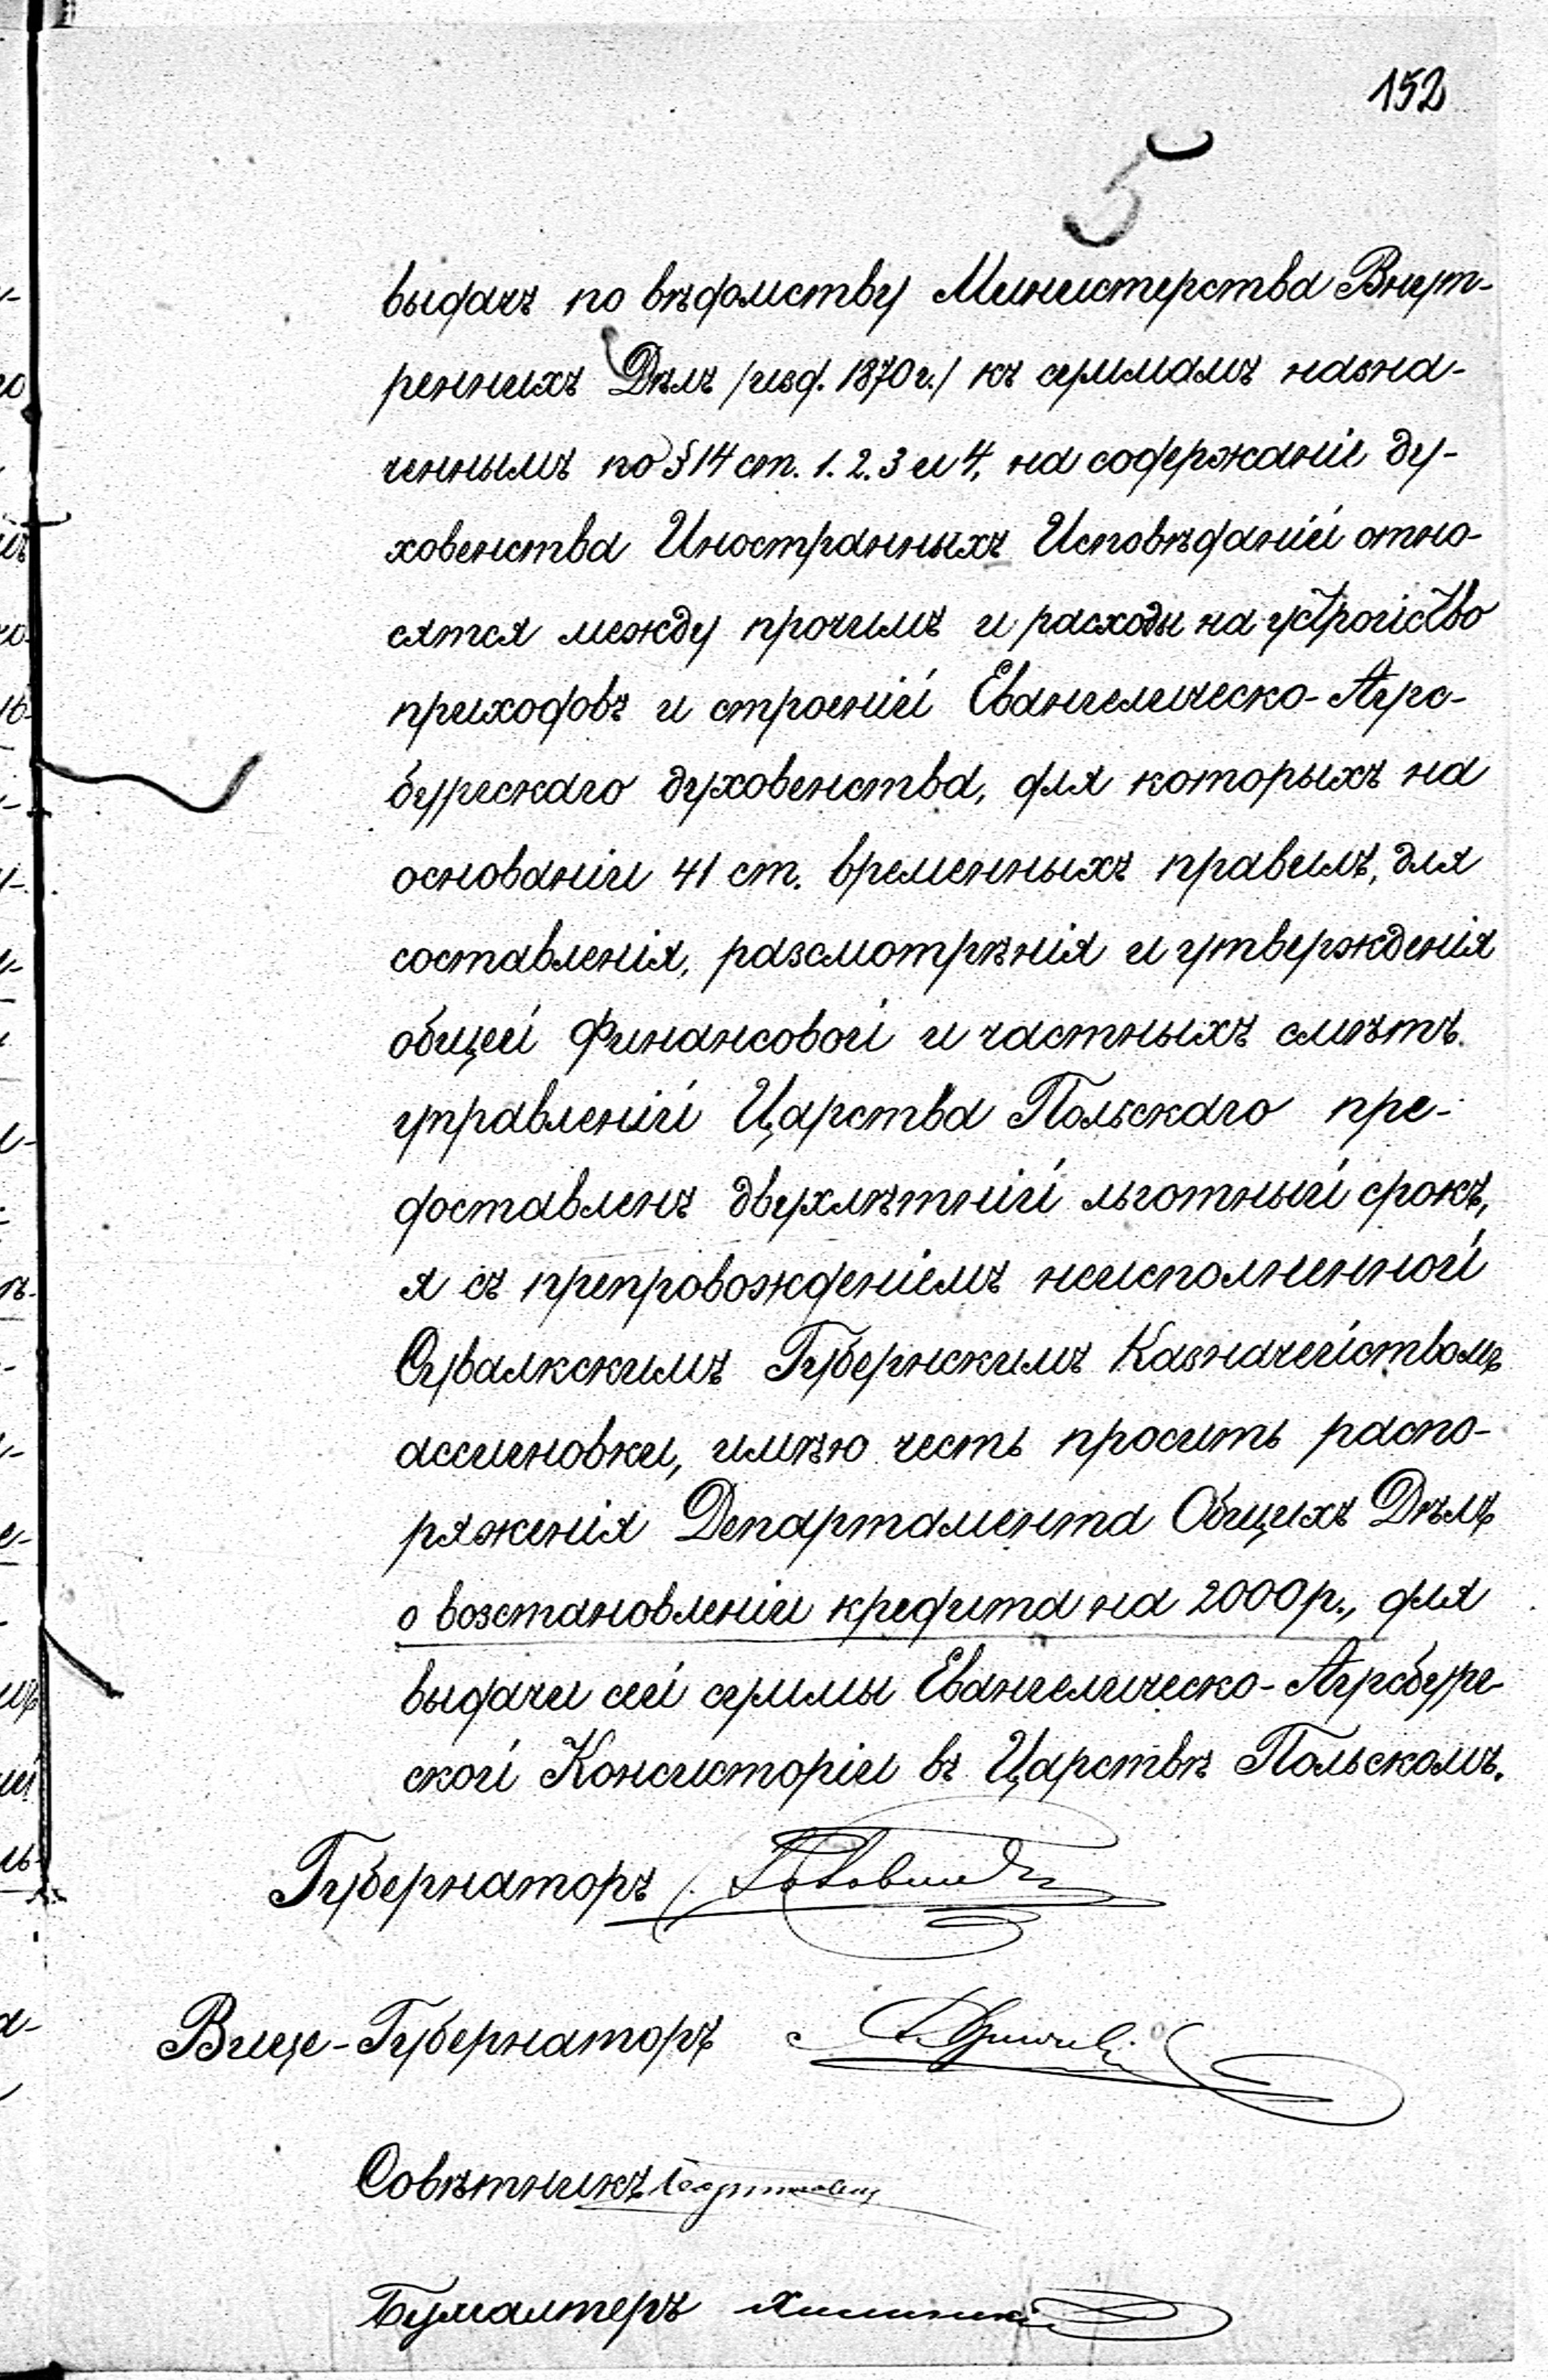 152
5
выдачъ по вѣдомству Министерства Внут-
реннихъ Дѣлъ /изд. 1870 г./ къ суммамъ назна-
ченнымъ по § 14 ст. 1. 2. 3 и 4, на содержаніе ду-
ховенства Иностранныхъ Исповѣданій отно-
сятся между прочимъ и расходы на устройство
приходовъ и строеній Евангелическо-Аугс-
бургскаго духовенства, для которыхъ на
основаніи 41 ст. временныхъ правилъ, для
составленія, разсмотрѣнія и утвержденія
общей финансовой и частныхъ смѣтъ
управленій Царства Польскаго пре-
доставленъ двухлѣтній льготный срокъ,
я съ препровожденіемъ неисполненной
Сувалкскимъ Губернскимъ Казначействомъ
ассигновки, имѣю честь просить распо-
ряженія Департамента Общихъ Дѣлъ
о возстановленіи кредита на 2000 р., для
выдачи сей суммы Евангелическо-Аугсбург-
ской Консисторіи въ Царствѣ Польскомъ.
Губернаторъ
Вице-Губернаторъ
Совѣтникъ
Бухгалтеръ